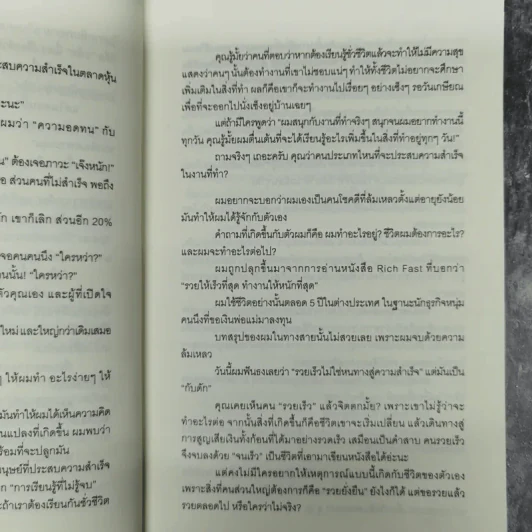 ะสบความสำเร็จในตลาดหุ้น
ะนะ"
ผมว่า "ความอดทน" กับ
น" ต้องเจอภาวะ "เจ๊งหนัก!"
อ ส่วนคนที่ไม่สำเร็จ พอถึง
ัก เขาก็เลิก ส่วนอีก 20%
จอคนคนนึง "ใครหว่า?"
นนั้น! "ใครหว่า?"
ัวคุณเอง และผู้ที่เปิดใจ
ใหม่ และใหญ่กว่าเดิมเสมอ
ๆ ให้ผมทำ อะไรง่ายๆ ให้
มันทำให้ผมได้เห็นความคิด
นแปลงที่เกิดขึ้น ผมพบว่า
ร้อมที่จะปลูกมัน
นุษย์ที่ประสบความสำเร็จ
ก "การเรียนรู้ที่ไม่รู้จบ"
ถ้าเราต้องเรียนกันชั่วชีวิต
คุณรู้มั้ยว่าคนที่ตอบว่าหากต้องเรียนรู้ชั่วชีวิตแล้วจะทำให้ไม่มีความสุข
แสดงว่าคนๆ นั้นต้องทำงานที่เขาไม่ชอบแน่ๆ ทำให้ทั้งชีวิตไม่อยากจะศึกษา
เพิ่มเติมในสิ่งที่ทำ ผลก็คือเขาก็จะทำงานไปเรื่อยๆ อย่างเซ็งๆ รอวันเกษียณ
เพื่อที่จะออกไปนั่งเซ็งอยู่บ้านเฉยๆ
แต่ถ้ามีใครพูดว่า "ผมสนุกกับงานที่ทำจริงๆ สนุกจนผมอยากทำงานนี้
ทุกวัน คุณรู้มั้ยผมตื่นเต้นที่จะได้เรียนรู้อะไรเพิ่มขึ้นในสิ่งที่ทำอยู่ทุกๆ วัน!"
ถามจริงๆ เถอะครับ คุณว่าคนประเภทไหนที่จะประสบความสำเร็จ
ในงานที่ทำ?
ผมอยากจะบอกว่าผมเองเป็นคนโชคดีที่ล้มเหลวตั้งแต่อายุยังน้อย
มันทำให้ผมได้รู้จักกับตัวเอง
คำถามที่เกิดขึ้นกับตัวผมก็คือ ผมทำอะไรอยู่? ชีวิตผมต้องการอะไร?
และผมจะทำอะไรต่อไป?
ผมถูกปลุกขึ้นมาจากการอ่านหนังสือ Rich Fast ที่บอกว่า
"รวยให้เร็วที่สุด ทำงานให้หนักที่สุด"
ผมใช้ชีวิตอย่างนั้นตลอด 5 ปีในต่างประเทศ ในฐานะนักธุรกิจหนุ่ม
คนนึงที่ขอเงินพ่อแม่มาลงทุน
บทสรุปของผมในทางสายนั้นไม่สวยเลย เพราะผมจบด้วยความ
ล้มเหลว
วันนี้ผมฟันธงเลยว่า "รวยเร็วไม่ใช่หนทางสู่ความสำเร็จ" แต่มันเป็น
"กับดัก"
คุณเคยเห็นคน "รวยเร็ว" แล้วจิตตกมั้ย? เพราะเขาไม่รู้ว่าจะ
ทำอะไรต่อ จากนั้นสิ่งที่เกิดขึ้นก็คือชีวิตเขาจะเริ่มเปลี่ยน แล้วเดินทางไป
สู่การสูญเสียเงินทั้งก้อนที่ได้มาอย่างรวดเร็ว เสมือนเป็นคำสาบ คนรวยเร็ว
จึงจบลงด้วย "จนเร็ว" เป็นชีวิตที่เอามาเขียนหนังสือได้อ่ะนะ
แต่คงไม่มีใครอยากให้เหตุการณ์แบบนี้เกิดกับชีวิตของตัวเอง
เพราะสิ่งที่คนส่วนใหญ่ต้องการก็คือ "รวยยั่งยืน" ยังไงก็ได้ แต่ขอรวยแล้ว
รวยตลอดไป หรือใครว่าไม่จริง?